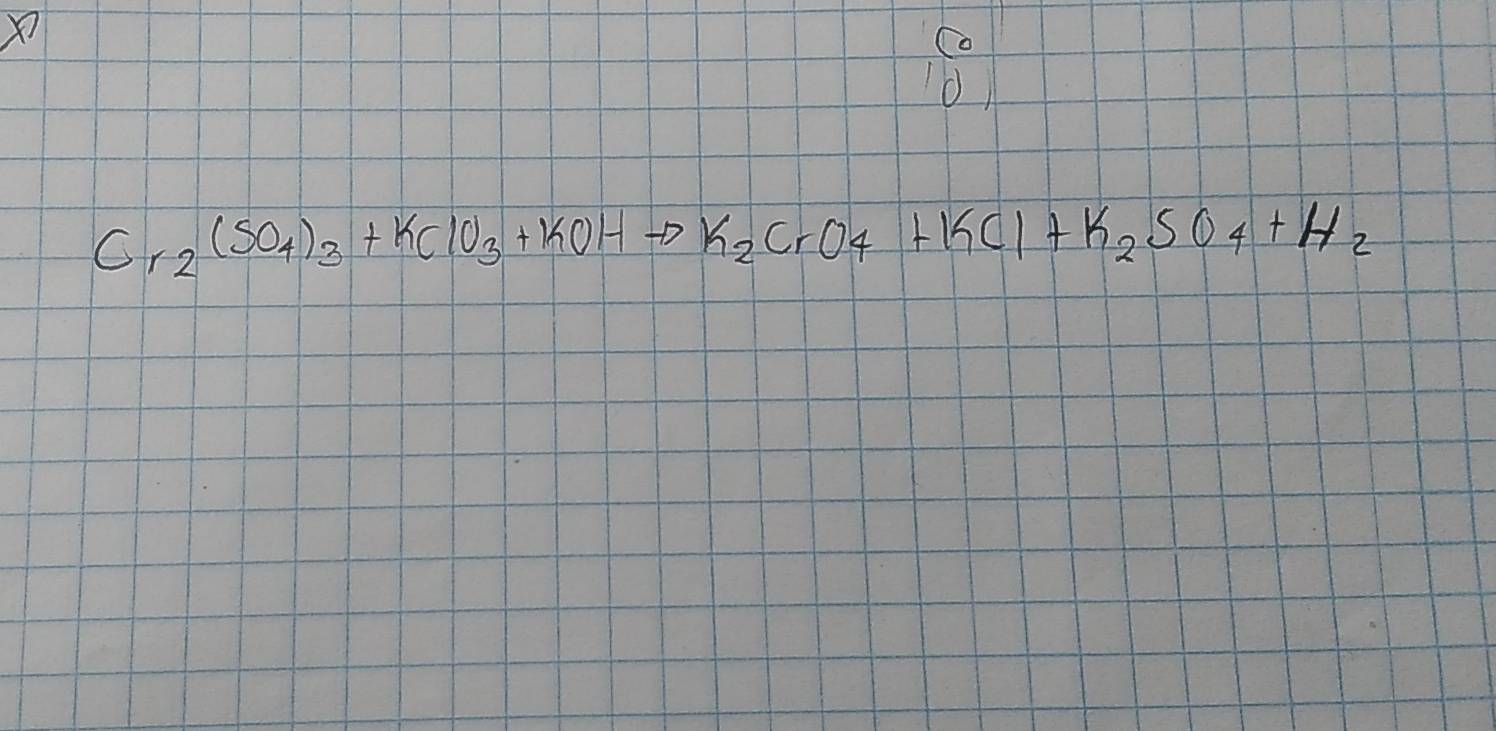 Cr₂(SO₄)₃ + KClO₃ + KOH → K₂CrO₄ + KCl + K₂SO₄ + H₂